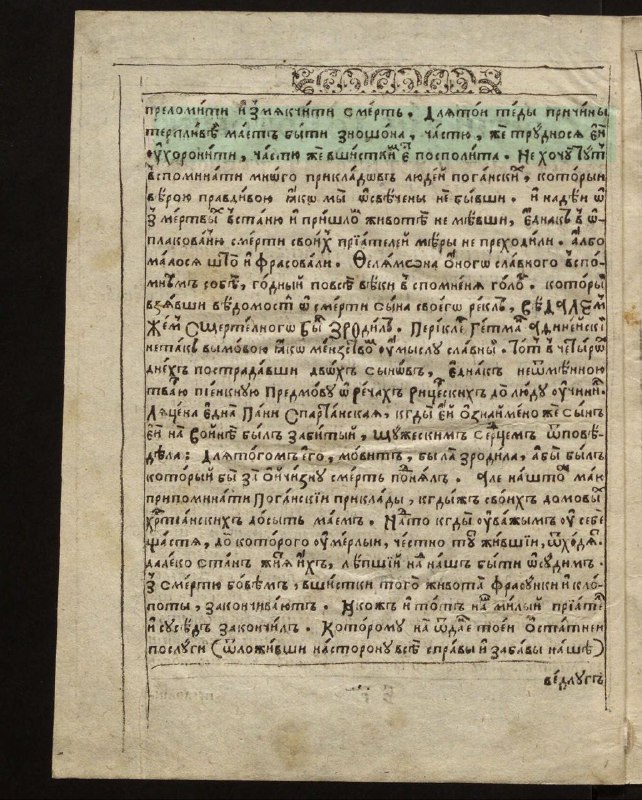 преломи́ти и҆ змякчи́ти сме́рть. Длято́и те́ды причи́ны
терпли́вѣ ма́етъ бы́ти зношо́на, ча́стю, же тру́днося є҆и́
ѹ҆хорони́ти, ча́стю же вши́стки є҆ поспо́лита. Не хочу̀ тутъ
вспомина́ти мно́го прикла́довъ люде́й пога́нски, кото́рыи
вѣ́рою правди́вою ꙗ҆ко мы̀ ѡ҆свѣ́чены не бы́вши. и҆ наде́и ѡ҆
з̾ ме́ртвы вста́ню и҆ при́шло животѣ не мѣ́вши, є҆дна́къ в ѡ҆-
плака́ню сме́рти свои́х прїа́телей мѣ́ры не преходи́ли. а҆́лбо
ма́лося што̀ и҆ фрасова́ли. Ѳеля́мона о҆́ного сла́вного вспо́-
мнѣмъ собѣ, го́дный повсѣ̀ вѣ́ки вспомне́ня го́ло. кото́ры
взя́вши вѣ́домост ѡ҆ сме́рти сы́на своего̀ ре́клъ, ВѢДАЛЕМ
ЖЕМ Сщерте́лного бы̀ ЗРОди́лъ. Перикле Ге́тма А҆дине́нскі
не та́къ вымо́вою ꙗ҆́ко ме́нзство ѹ҆мы́слу сла́вны. То́т в четы́рѡ
дне́хъ пострада́вши дво́хъ сыно́въ, є҆дна́къ неѡ҆мѣ́нною
тва́ю пїе́нкную Предмо́ву ѡ҆ ре́чахъ Ри́цескихъ до лю́ду ѹ҆чини́.
Ляце́на є҆дна̀ Па́ни Спарта́нская, кгды̀ є҆́и ѻ҆знаймено же сы́нъ
є҆́и на Во́йнѣ бы́лъ заби́тый, мужескимъ Се́рцемъ ѿповѣ-
дѣла: Для то́гомъ є҆го̀, мо́витъ, была̀ зроди́ла, а҆бы̀ бы́лъ
кото́рый бы̀ за ѻ҆йчи́зну сме́рть поня́лъ. Але нашто̀ ма́ю
припомина́ти Пога́нскїи прикла́ды, кгды́жъ свои́хъ домовы́
хрстїа́нскихъ до́сыть ма́емъ. На́што кгды̀ ѹ҆ва́жымъ ѹ҆ себѐ
ща́стя, до кото́рого ѹ҆ме́рлыи, че́стно ту жи́вшїи, ѿхо́дя.
дале́ко ста́нъ жи́тя и҆́хъ, лѣ́пшїй на́д на́шъ бы́ти ѡ҆су́димъ.
з̾ Сме́ртю бовѣ́мъ, вши́стки того̀ живота̀ фрасу́нки и҆ кло́-
поты, зако́нчиваютъ. Якожъ и҆ то́тъ на́ш ми́лый прїа́те
и҆ сусѣ́дъ зако́нчилъ. Кото́рому на ѿда́е тое́и ѻ҆ста́тнеи
послу́ги (ѿложи́вши на́сторону всѣ̀ спра́вы и҆ заба́вы на́шѣ)
ве́длугъ